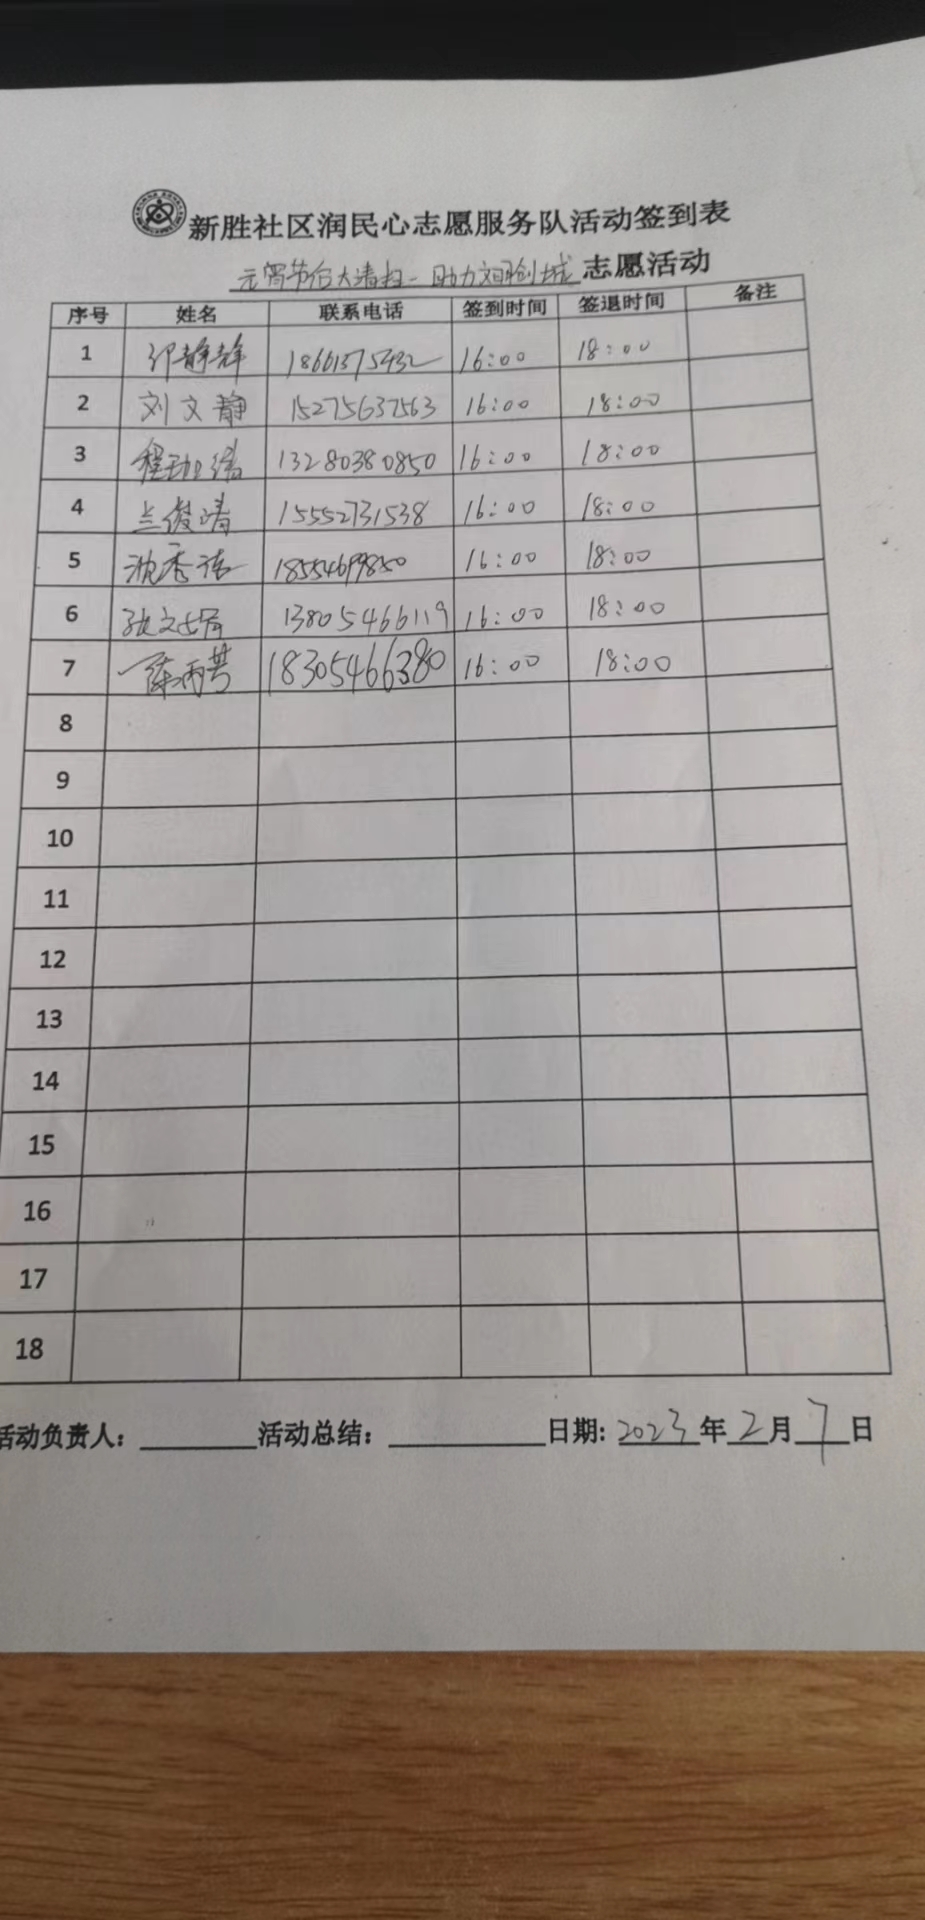 新胜社区润民心志愿服务队活动签到表
元宵节后大清扫－助力文明创城 志愿活动
序号 姓名 联系电话 签到时间 签退时间 备注
1 邓静静 18661375432 16:00 18:00
2 刘文静 15275637563 16:00 18:00
3 13280380850 16:00 18:00
4 兰俊清 15552731538 16:00 18:00
5 沈秀 16:00 18:00
6 张文 13805466119 16:00 18:00
7 陈丙 18305466380 16:00 18:00
8
9
10
11
12
13
14
15
16
17
18
活动负责人： 活动总结： 日期: 2023 年 2 月 7 日